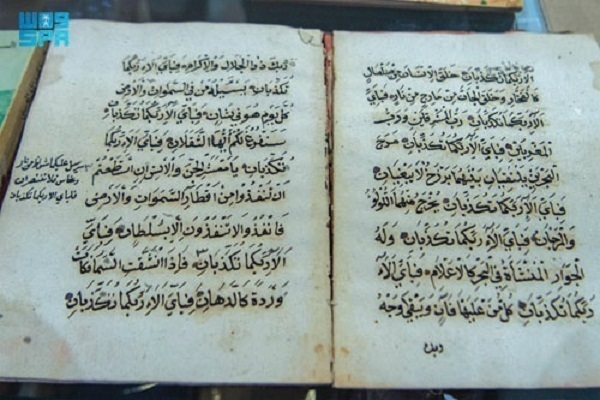 واس
SPA
الاء ربكما تكذبان خلق الانسان من صلصال
كالفخار وخلق الجان من مارج من نار فباي
الاء ربكما تكذبان رب المشرقين ورب
المغربين فباي الاء ربكما تكذبان مرج
البحرين يلتقيان بينهما برزخ لا يبغيان
فباي الاء ربكما تكذبان يخرج منهما اللؤلؤ
والمرجان فباي الاء ربكما تكذبان وله
الجوار المنشآت في البحر كالاعلام فباي الاء
ربكما تكذبان كل من عليها فان ويبقى وجه
ربك
ربك ذو الجلال والاكرام فباي الاء ربكما
تكذبان يسئله من في السموات والارض
كل يوم هو في شان فباي الاء ربكما تكذبان
سنفرغ لكم ايها الثقلان فباي الاء ربكما
تكذبان يا معشر الجن والانس ان استطعتم
ان تنفذوا من اقطار السموات والارض
فانفذوا لا تنفذون الا بسلطان فباي
الاء ربكما تكذبان فاذا انشقت السماء فكانت
وردة كالدهان فباي الاء ربكما تكذبان
يرسل عليكما شواظ من نار
ونحاس فلا تنتصران
فباي الاء ربكما تكذبان